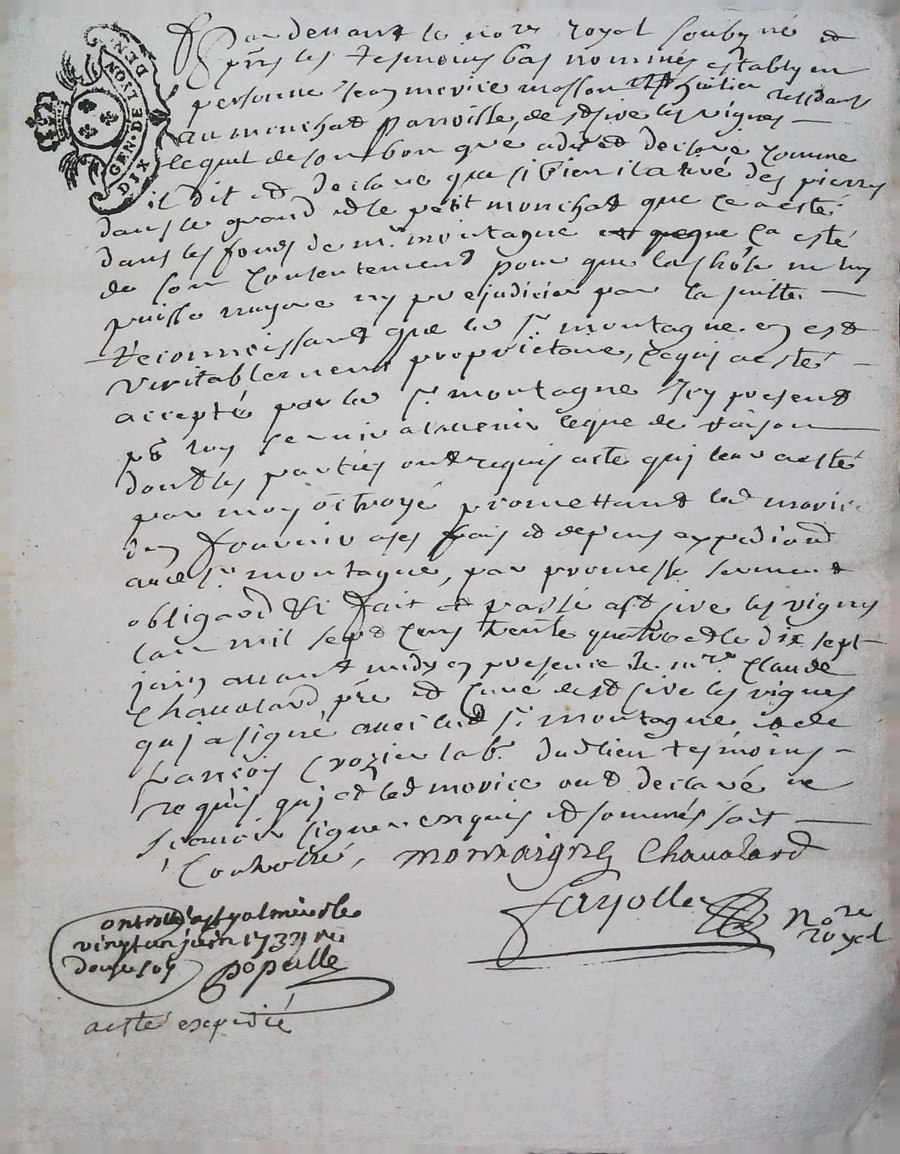 GEN. DE LYON
DIX DEN.
Pardevant le no.re royal soubsigné et
p.nts les tesmoins bas nommés establý en
personne Jean morice masson residant
au monchat Parroisse, de st sive les vignes
lequel de son bon gre a dit et declare comme
il dit et declare que si bien il a tiré des pierres
dans le grand et le petit monchat que ce a esté
dans les fonds de m.r montagne et que ça esté
de son consentement pour que la chose ne luy
puisse nuyre ny prejudicier par la suitte
reconnoissant que le s.r montagne en est
veritablement proprietaire, ce qui a esté
accepté par le s.r montagne icy present
p.r luy servir a l'avenir ce que de raison
dont les parties ont requis acte qui leur a esté
par moy octroyé promettant led morice
den fournir a ses frais et depens expedition
aud s.r montagne, par promesse serment
obligaon &c fait et passé a st sive les vignes
l'an mil sept cens trente quatre et le dix sept
juin avant midy en presence de m.re Claude
Chavalard p.re et curé de st sive les vignes
qui a signé avec led s.r montagne et de
francois Crozier lab.r dud lieu tesmoins
requis qui et led morice ont declaré ne
scavoir signer enquis et sommés soit
Controllé, montaigne Chavalard
fayolle no.re
royal
Controllé a st galmier le
vingt un juin 1734 reçu
douze sols
populle
a esté expedié